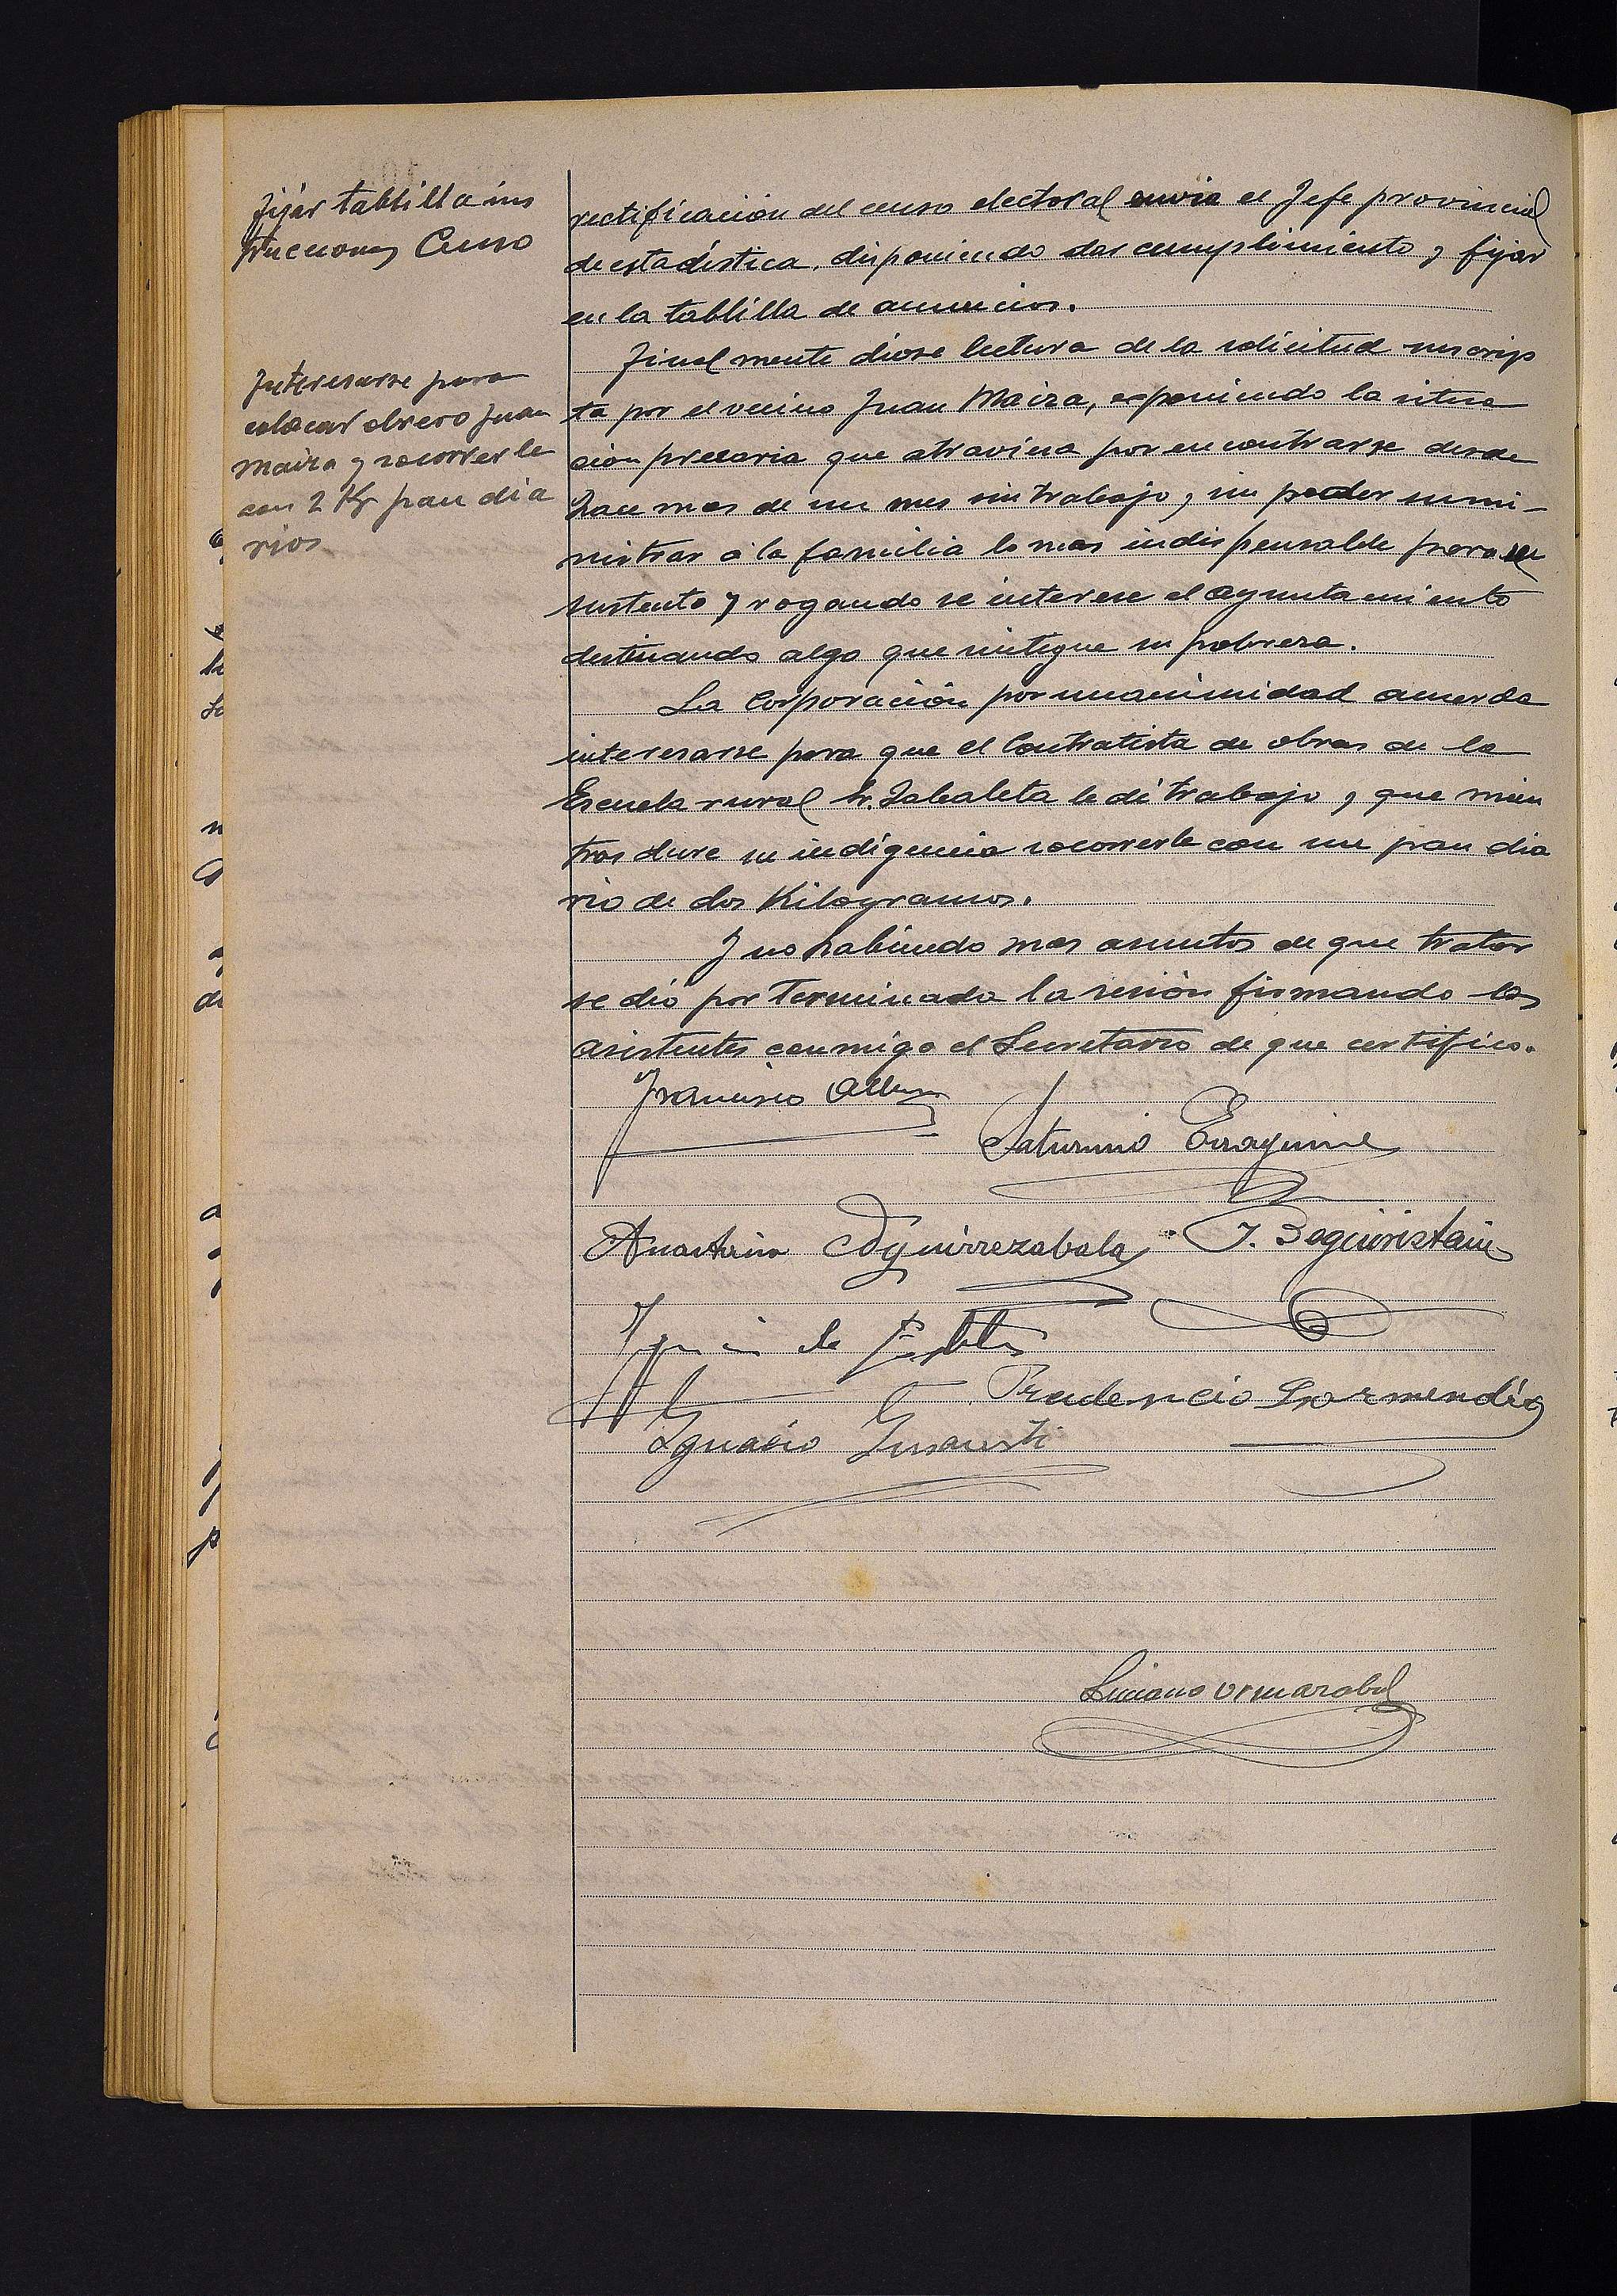 fijar tablilla ins
trucciones Censo
rectificación del censo electoral envia el Jefe provincial
de estadística, disponiendo dar cumplimiento y fijar
en la tablilla de anuncios.
Finalmente diose lectura de la solicitud suscrip
Interesarse para
colocar obrero Juan
Maiza y socorrerle
con 2 Kg pan dia
rios
ta por el vecino Juan Maiza, exponiendo la situa
ción precaria que atraviesa por encontrarse desde
hace mas de un mes sin trabajo, sin poder sumi-
nistrar á la familia lo mas indispensable para su
sustento y rogando se interese el Ayuntamiento
destinando algo que mitigue su pobreza.
La Corporación por unanimidad acuerda
interesarse para que el Contratista de obras de la
Escuela rural Sr. Zabaleta le dé trabajo, y que mien
tras dure su indigencia socorrerle con un pan dia
rio de dos Kilogramos.
Y no habiendo mas asuntos de que tratar
se dió por terminada la sesión firmando los
asistentes conmigo el Secretario de que certifico.
Francisco
Saturnino Eraguine
Anastasio Aguirrezabala J. Beguiristain
de
Prudencio Garmendia
Ignacio
Luciano Ormazabal